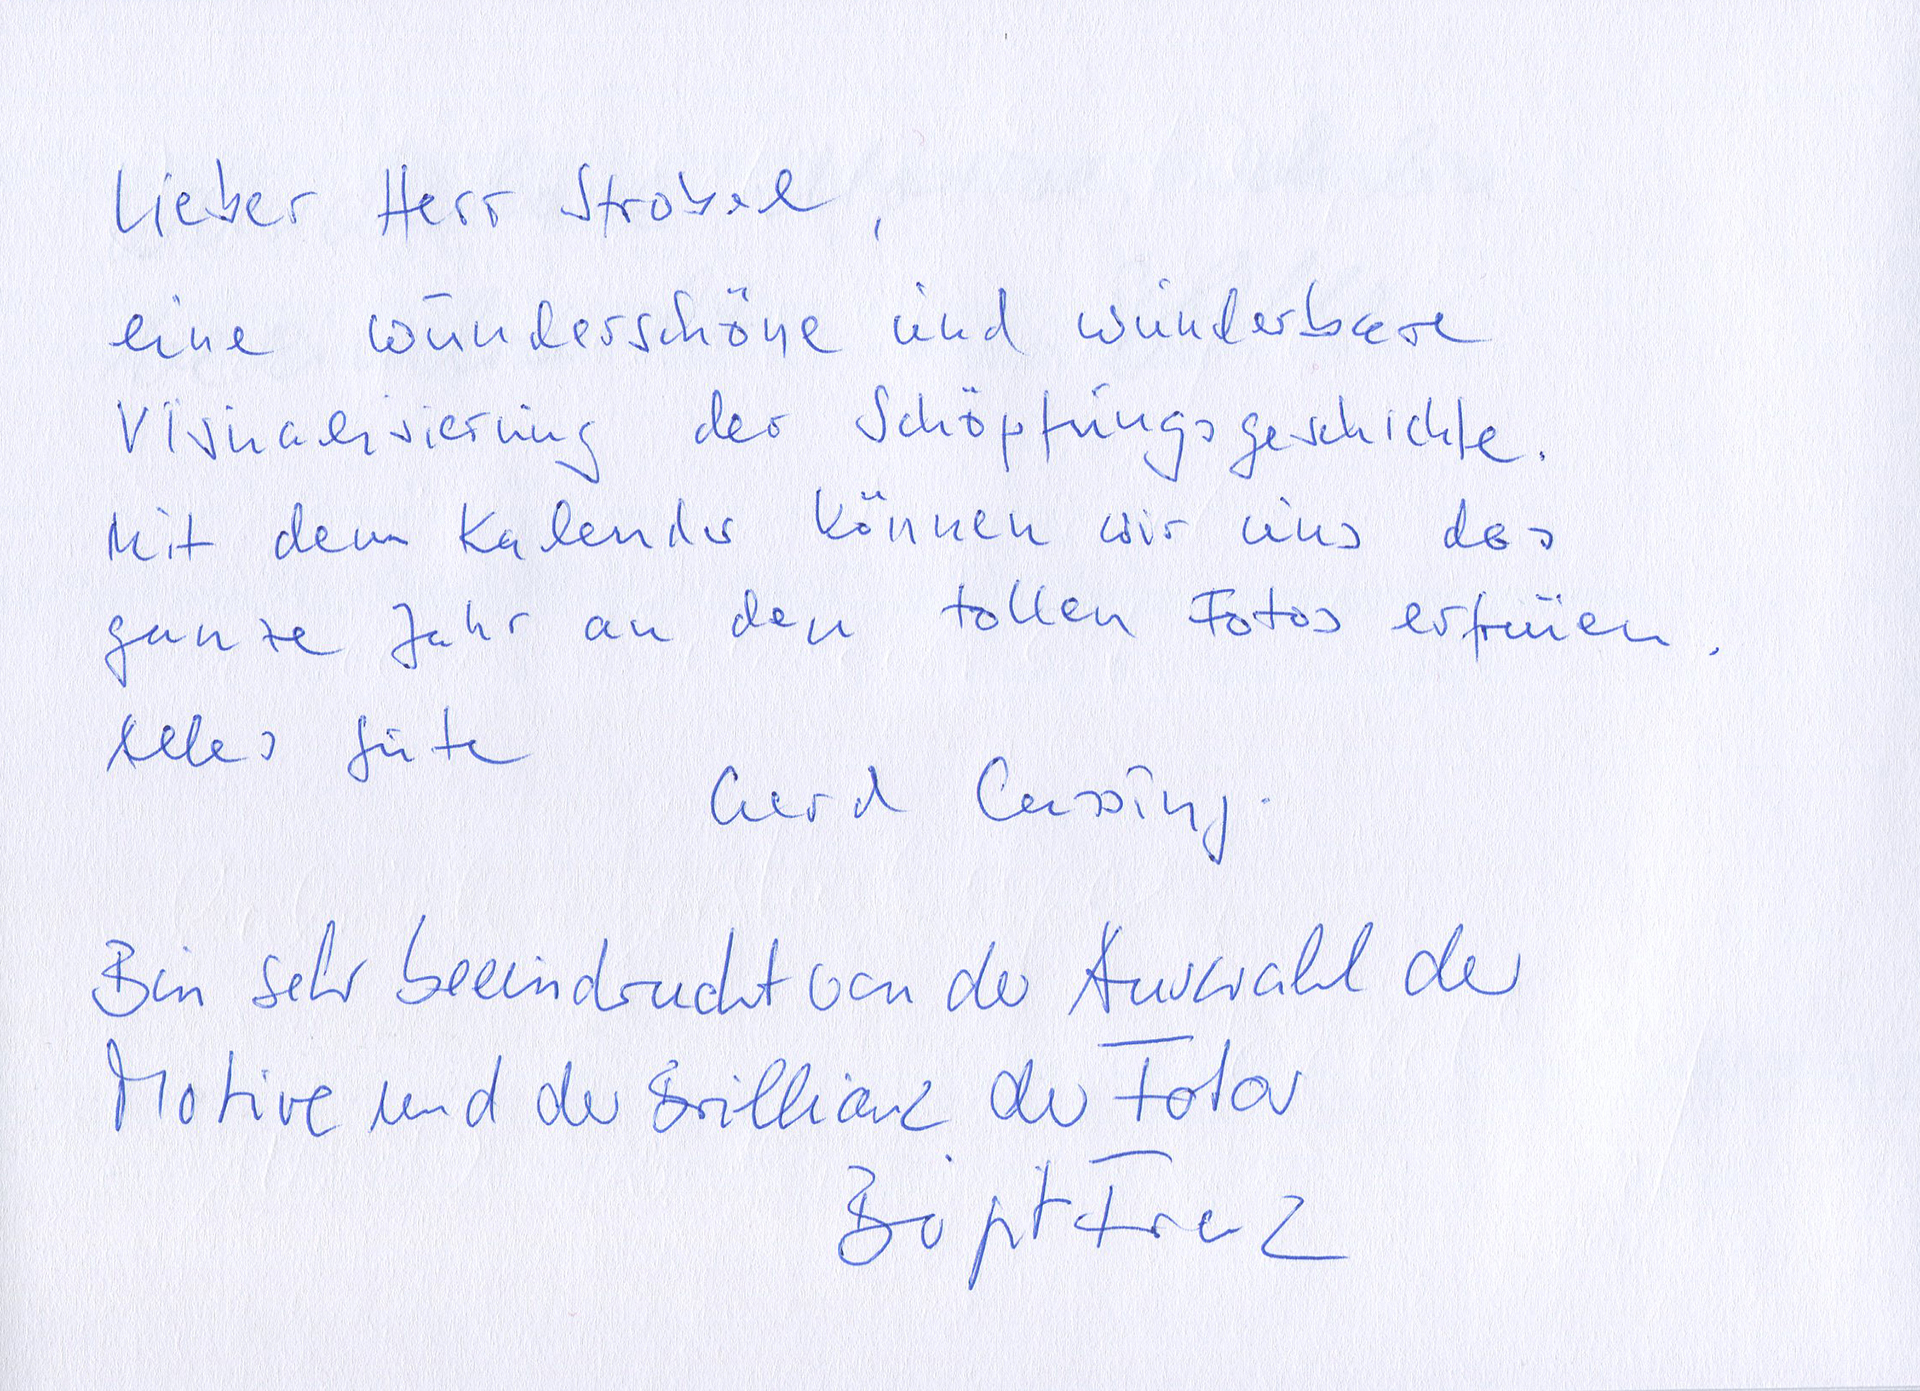 Lieber Herr Strobel,
eine wunderschöne und wunderbare
Visualisierung der Schöpfungsgeschichte.
Mit dem Kalender können wir uns das
ganze Jahr an den tollen Fotos erfreuen.
Alles Gute
Gerd Cassing.
Bin sehr beeindruckt von der Auswahl der
Motive und der Brillianz der Fotos